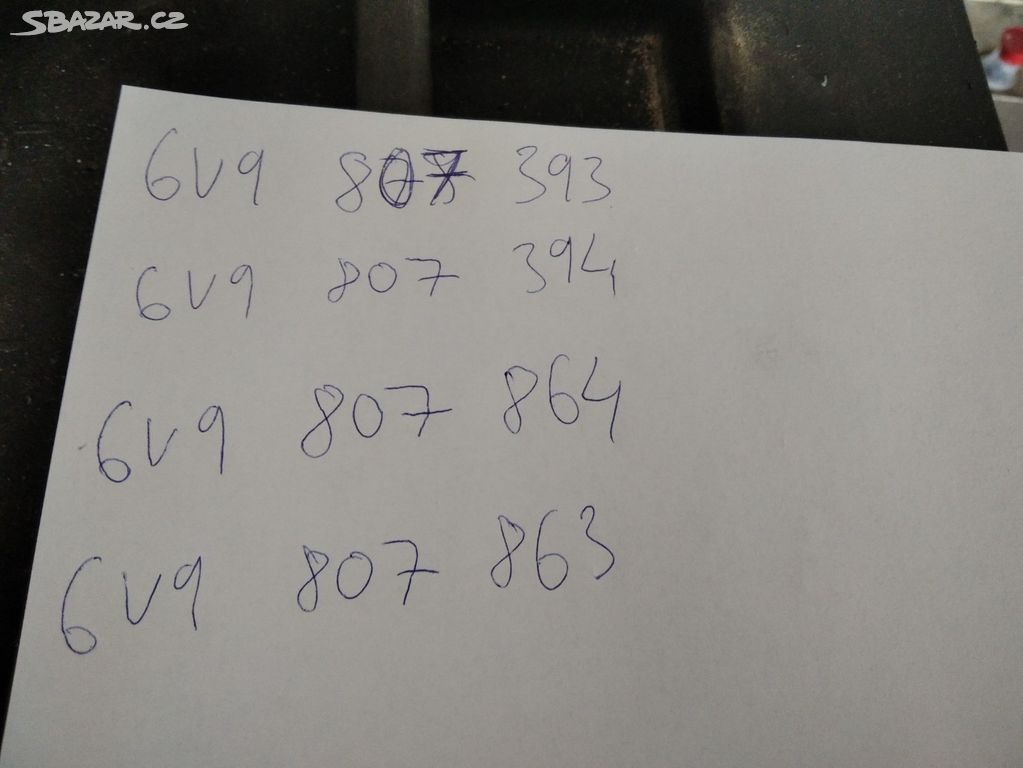 SBAZAR.CZ
6V9 807 393
6V9 807 394
6V9 807 864
6V9 807 863